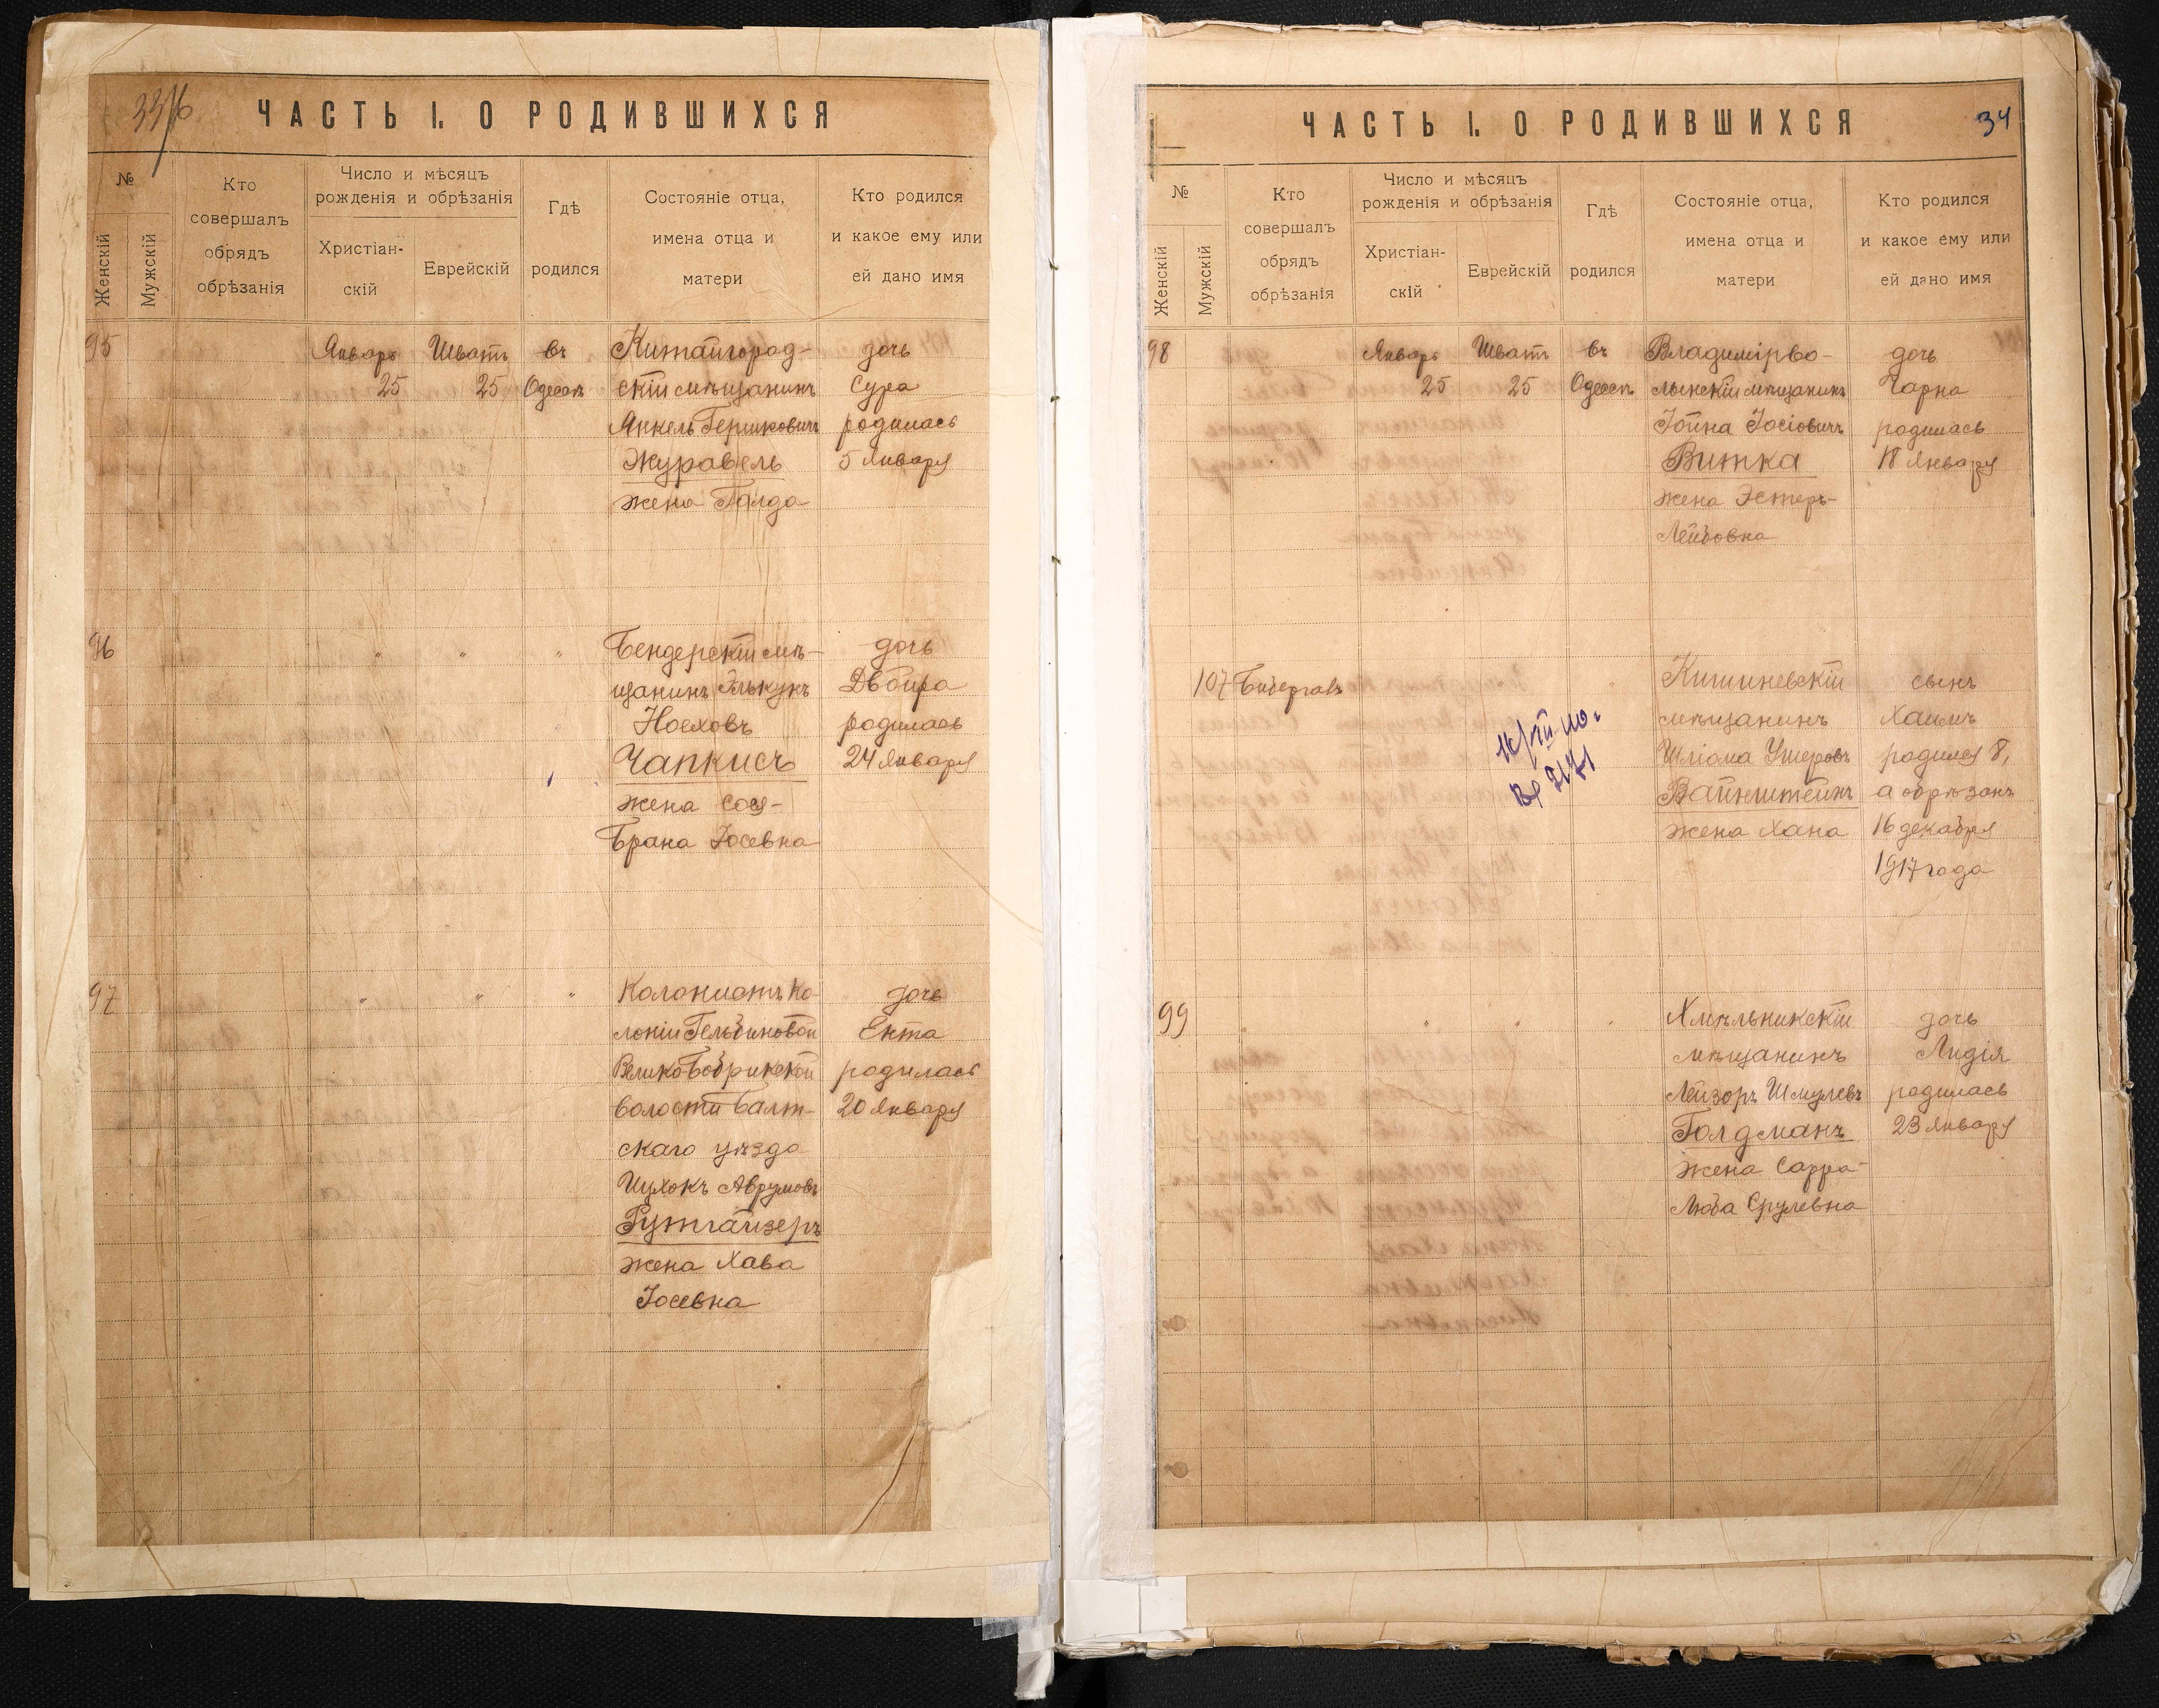 ЧАСТЬ I. О РОДИВШИХСЯ
№
Женскій
Мужскій
Кто
совершалъ
обрядъ
обрѣзанія
Число и мѣсяцъ
рожденія и обрѣзанія
Христіан-
скій
Еврейскій
Гдѣ
родился
Состояніе отца,
имена отца и
матери
Кто родился
и какое ему или
ей дано имя
95 Январь Шватъ въ Китайгород- дочь
25 25 Одессѣ скій мѣщанинъ Сура
Янкель Гершковичъ родилась
Журавель 5 Января
жена Голда
96 " " " Бендерскій мѣ- дочь
щанинъ Элькунъ Двойра
Ноеховъ родилась
Чапкисъ 24 Января
жена Сося-
Брана Іосевна
97 " " " Колонистъ ко- дочь
лоніи Гельбиновой Ента
Великобобрикской родилась
волости Балт- 20 Января
скаго уѣзда
Ицхокъ Аврумовъ
Гутгайзеръ
жена Хава
Іосевна
34
ЧАСТЬ I. О РОДИВШИХСЯ
№
Женскій
Мужскій
Кто
совершалъ
обрядъ
обрѣзанія
Число и мѣсяцъ
рожденія и обрѣзанія
Христіан-
скій
Еврейскій
Гдѣ
родился
Состояніе отца,
имена отца и
матери
Кто родился
и какое ему или
ей дано имя
98 Январь Шватъ въ Владимірво- дочь
25 25 Одессѣ лынскій мѣщанинъ Чарна
Іойна Іосіовичъ родилась
Витка 18 Января
жена Эстеръ-
Лейбовна
107 Бибергалъ " " Кишиневскій сынъ
мѣщанинъ Хаимъ
Шліома Ушеровъ родился 8,
Вайнштейнъ а обрѣзанъ
жена Хана 16 декабря
1917 года
99 " " Хмѣльникскій дочь
мѣщанинъ Лидія
Лейзоръ Шмулевъ родилась
Голдманъ 23 Января
жена Сарра-
Люба Срулевна